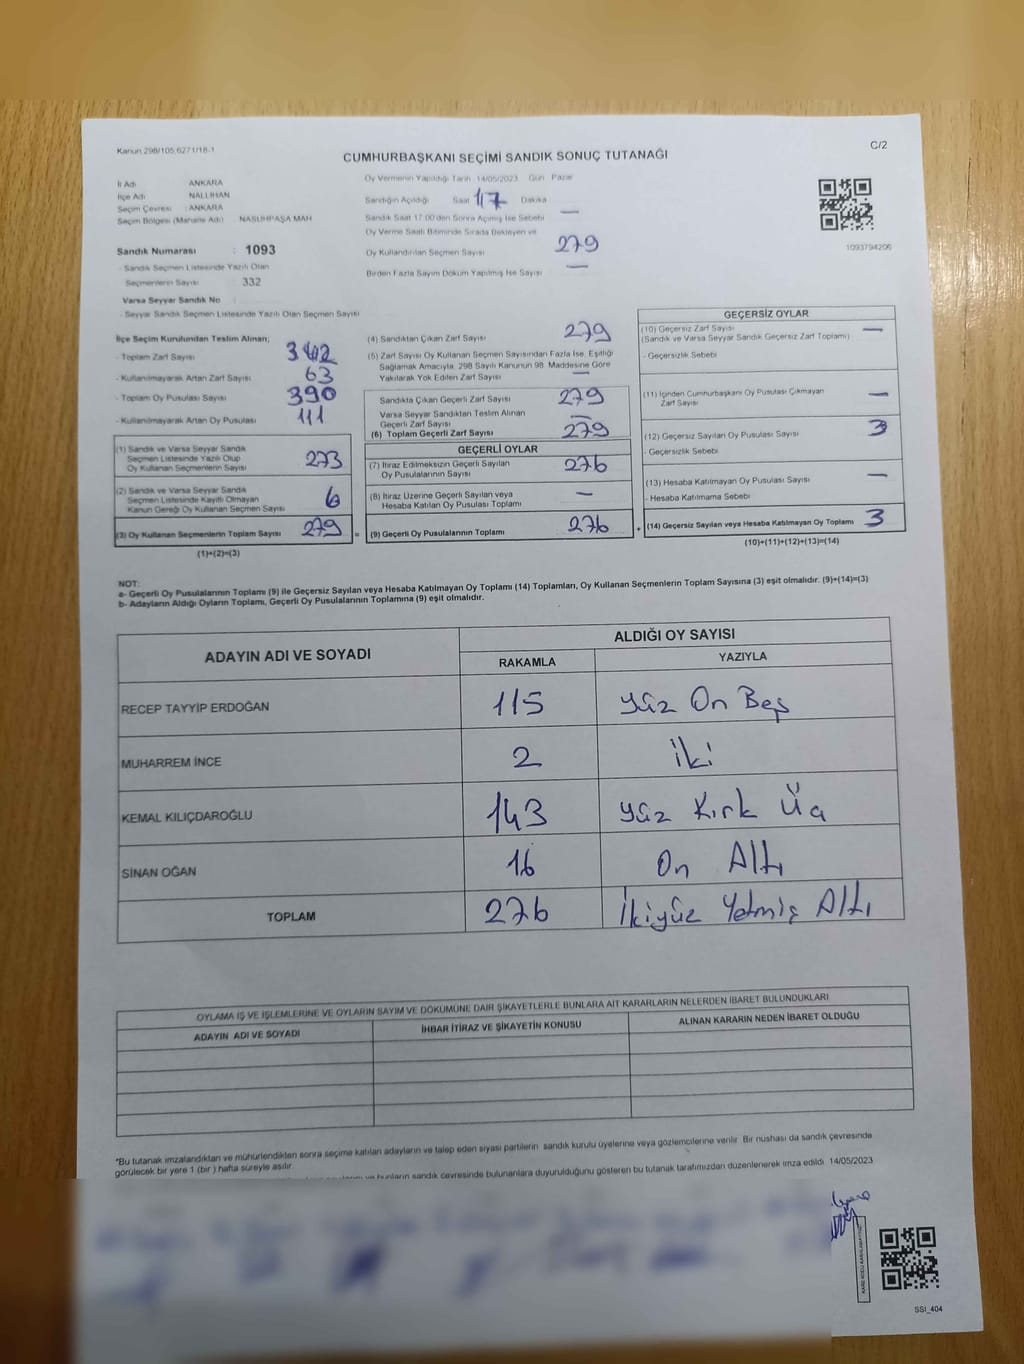 Kanun 298/105,6271/18-1
C/2
CUMHURBAŞKANI SEÇİMİ SANDIK SONUÇ TUTANAĞI
İl Adı ANKARA
İlçe Adı NALLIHAN
Seçim Çevresi : ANKARA
Seçim Bölgesi (Mahalle Adı) : NASUHPAŞA MAH
Sandık Numarası : 1093
- Sandık Seçmen Listesinde Yazılı Olan
Seçmenlerin Sayısı 332
Varsa Seyyar Sandık No
- Seyyar Sandık Seçmen Listesinde Yazılı Olan Seçmen Sayısı
Oy Vermenin Yapıldığı Tarih 14/05/2023 Gün Pazar
Sandığın Açıldığı Saat 17 Dakika
Sandık Saat 17:00'den Sonra Açılmış İse Sebebi —
Oy Verme Saati Bitiminde Sırada Bekleyen ve
Oy Kullandırılan Seçmen Sayısı 279
Birden Fazla Sayım Döküm Yapılmış İse Sayısı —
1093794206
İlçe Seçim Kurulundan Teslim Alınan;
- Toplam Zarf Sayısı 342
- Kullanılmayarak Artan Zarf Sayısı 63
- Toplam Oy Pusulası Sayısı 390
- Kullanılmayarak Artan Oy Pusulası 111
(1) Sandık ve Varsa Seyyar Sandık
Seçmen Listesinde Yazılı Olup
Oy Kullanan Seçmenlerin Sayısı 273
(2) Sandık ve Varsa Seyyar Sandık
Seçmen Listesinde Kayıtlı Olmayan
Kanun Gereği Oy Kullanan Seçmen Sayısı 6
(3) Oy Kullanan Seçmenlerin Toplam Sayısı 279 =
(1)+(2)=(3)
(4) Sandıktan Çıkan Zarf Sayısı 279
(5) Zarf Sayısı Oy Kullanan Seçmen Sayısından Fazla İse, Eşitliği
Sağlamak Amacıyla, 298 Sayılı Kanunun 98. Maddesine Göre
Yakılarak Yok Edilen Zarf Sayısı —
Sandıkta Çıkan Geçerli Zarf Sayısı 279
Varsa Seyyar Sandıktan Teslim Alınan
Geçerli Zarf Sayısı —
(6) Toplam Geçerli Zarf Sayısı 279
GEÇERLİ OYLAR
(7) İtiraz Edilmeksizin Geçerli Sayılan
Oy Pusulalarının Sayısı 276
(8) İtiraz Üzerine Geçerli Sayılan veya
Hesaba Katılan Oy Pusulası Toplamı —
(9) Geçerli Oy Pusulalarının Toplamı 276 +
GEÇERSİZ OYLAR
(10) Geçersiz Zarf Sayısı —
(Sandık ve Varsa Seyyar Sandık Geçersiz Zarf Toplamı)
- Geçersizlik Sebebi
(11) İçinden Cumhurbaşkanı Oy Pusulası Çıkmayan
Zarf Sayısı —
(12) Geçersiz Sayılan Oy Pusulası Sayısı 3
- Geçersizlik Sebebi
(13) Hesaba Katılmayan Oy Pusulası Sayısı —
- Hesaba Katılmama Sebebi
(14) Geçersiz Sayılan veya Hesaba Katılmayan Oy Toplamı 3
(10)+(11)+(12)+(13)=(14)
NOT:
a- Geçerli Oy Pusulalarının Toplamı (9) ile Geçersiz Sayılan veya Hesaba Katılmayan Oy Toplamı (14) Toplamları, Oy Kullanan Seçmenlerin Toplam Sayısına (3) eşit olmalıdır. (9)+(14)=(3)
b- Adayların Aldığı Oyların Toplamı, Geçerli Oy Pusulalarının Toplamına (9) eşit olmalıdır.
ADAYIN ADI VE SOYADI
ALDIĞI OY SAYISI
RAKAMLA YAZIYLA
RECEP TAYYİP ERDOĞAN 115 Yüz On Beş
MUHARREM İNCE 2 İki
KEMAL KILIÇDAROĞLU 143 Yüz Kırk Üç
SİNAN OĞAN 16 On Altı
TOPLAM 276 İkiyüz Yetmiş Altı
OYLAMA İŞ VE İŞLEMLERİNE VE OYLARIN SAYIM VE DÖKÜMÜNE DAİR ŞİKAYETLERLE BUNLARA AİT KARARLARIN NELERDEN İBARET BULUNDUKLARI
ADAYIN ADI VE SOYADI İHBAR İTİRAZ VE ŞİKAYETİN KONUSU ALINAN KARARIN NEDEN İBARET OLDUĞU
*Bu tutanak imzalandıktan ve mühürlendikten sonra seçime katılan adayların ve talep eden siyasi partilerin sandık kurulu üyelerine veya gözlemcilerine verilir. Bir nüshası da sandık çevresinde
görülecek bir yere 1 (bir ) hafta süreyle asılır.
bunların sandık çevresinde bulunanlara duyurulduğunu gösteren bu tutanak tarafımızdan düzenlenerek imza edildi. 14/05/2023
SSI_404